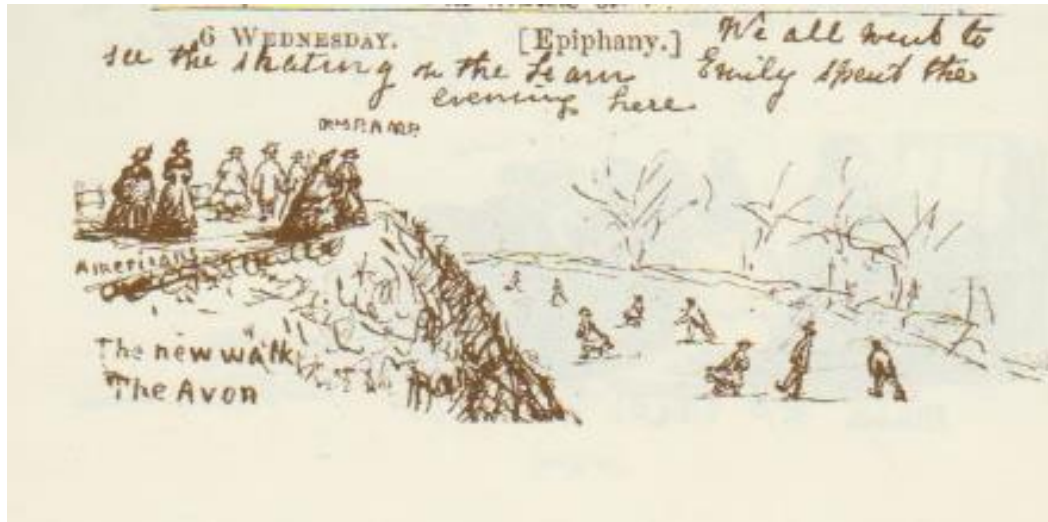 6 WEDNESDAY. [Epiphany.] We all went to
see the skating on the Leam Emily spent the
evening here
Americans
The new walk
The Avon